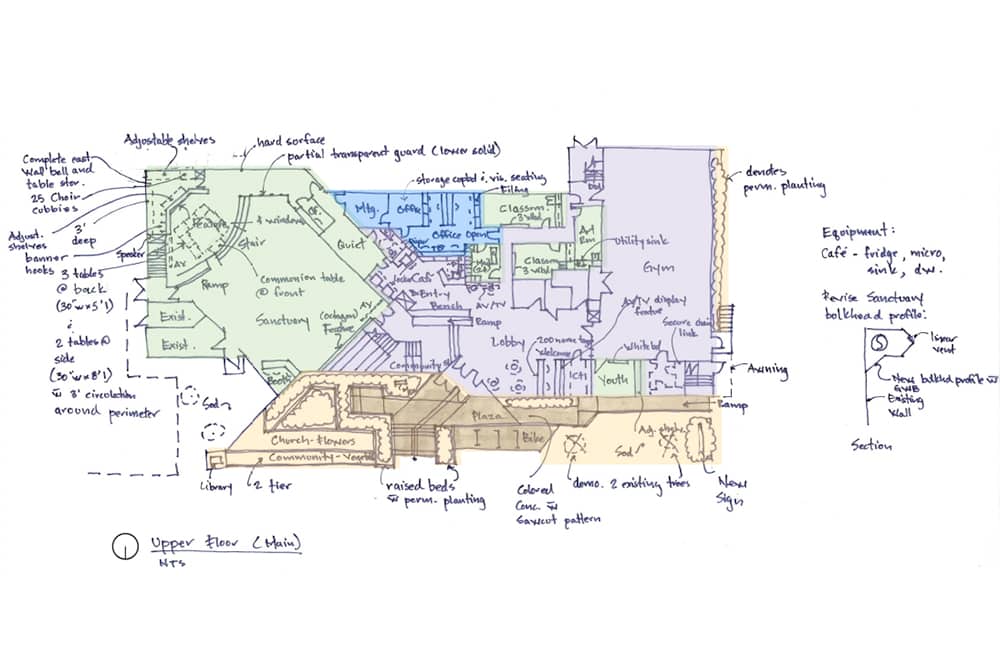 Adjustable shelves
hard surface
partial transparent guard (lower solid)
Complete east
wall bell and
table stor.
25 Chair
cubbies
Adjust.
shelves
3'
deep
banner
hooks
Speaker
3 tables
@ back
(30"w x 5'l)
2 tables @
side
(30"w x 8'l)
3' circulation
around perimeter
AV
Ramp
Stair
Communion table
@ front
Exist.
Exist.
Sanctuary
(octagon)
Feature
AV
Quiet
Off.
4 windows
Booth
storage capbd & vis. seating
Filing
Mtg.
Office
Office Open
Classrm
3 wlbd
Classrm
3 wlbd
Art
Rm
Utility sink
Gym
Entry
Bench
AV/TV
Ramp
Lobby
200 name tag
Welcome
AV/TV display
feature
Secure chain
link
White bd
Youth
Community
Awning
Ramp
denotes
perm. planting
Plaza
Bike
Church-Flowers
Community-Vege
Sod
Sod
Library
2 tier
raised beds
perm. planting
Colored
Conc.
Sawcut pattern
demo. 2 existing trees
New
Sign
Equipment:
Café - fridge, micro,
sink, dw.
Revise Sanctuary
bulkhead profile:
S
linear
vent
New bulkhd profile
GWB
Existing
Wall
Section
Upper Floor (Main)
NTS